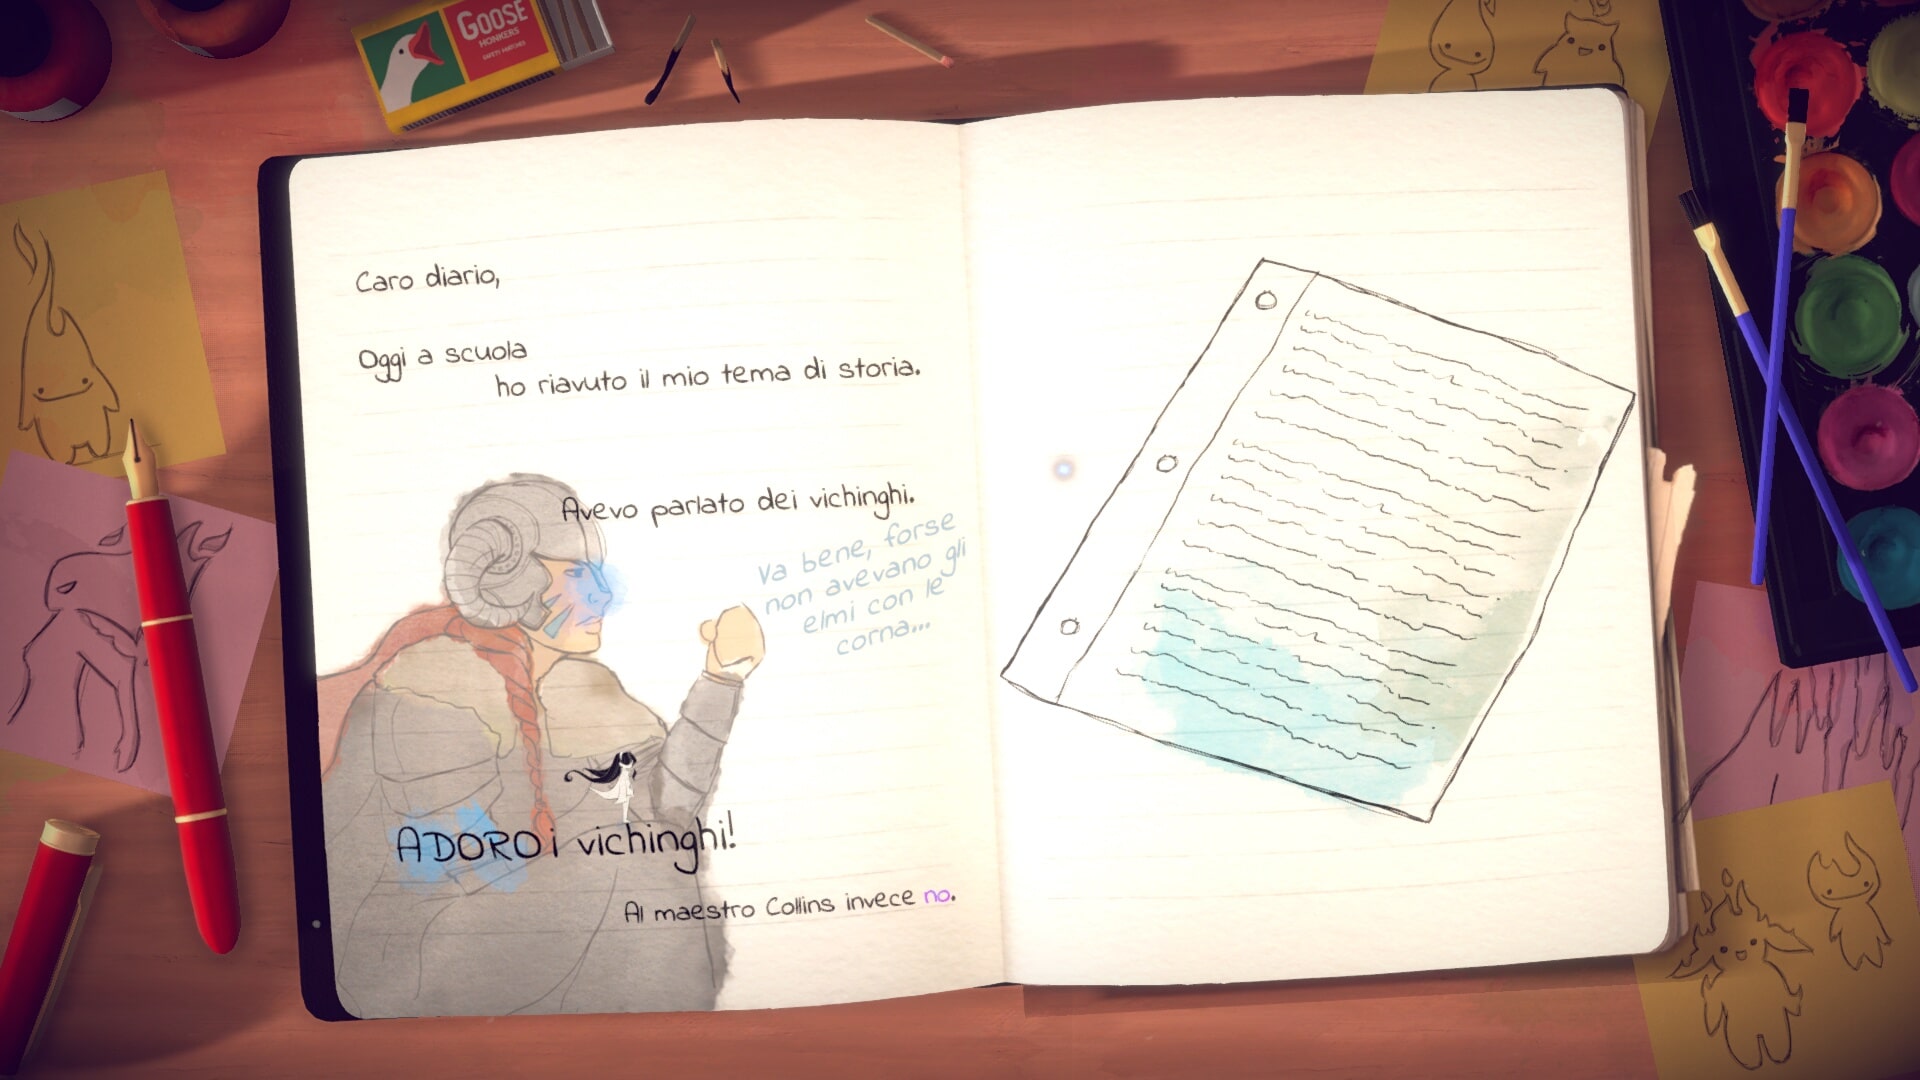 GOOSE
HONKERS
SAFETY MATCHES
Caro diario,
Oggi a scuola
ho riavuto il mio tema di storia.
Avevo parlato dei vichinghi.
Va bene, forse
non avevano gli
elmi con le
corna...
ADORO i vichinghi!
Al maestro Collins invece no.